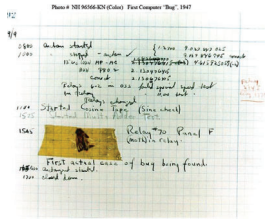 Photo # NH 96566-KN (Color) First Computer "Bug", 1947
9/9
0800 antan started
1000 " stopped - antan ✓
13" sec MP - MC
033 PRO 2 2.130476415
correct 2.130676415
Relays 6-2 in 033 failed special speed test
in relay
Relays changed
1100 Started Cosine Tape (Sine check)
1525 Started Multi Adder Test.
1545 Relay #70 Panel F
(moth) in relay.
First actual case of bug being found.
antangent started.
1700 closed down.